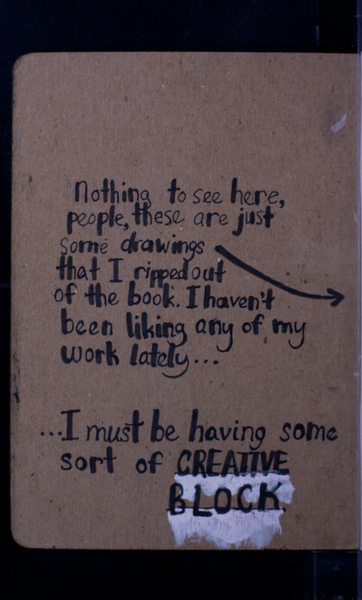 Nothing to see here,
people, these are just
some drawings
that I ripped out
of the book. I haven't
been liking any of my
work lately...
...I must be having some
sort of CREATIVE
BLOCK.